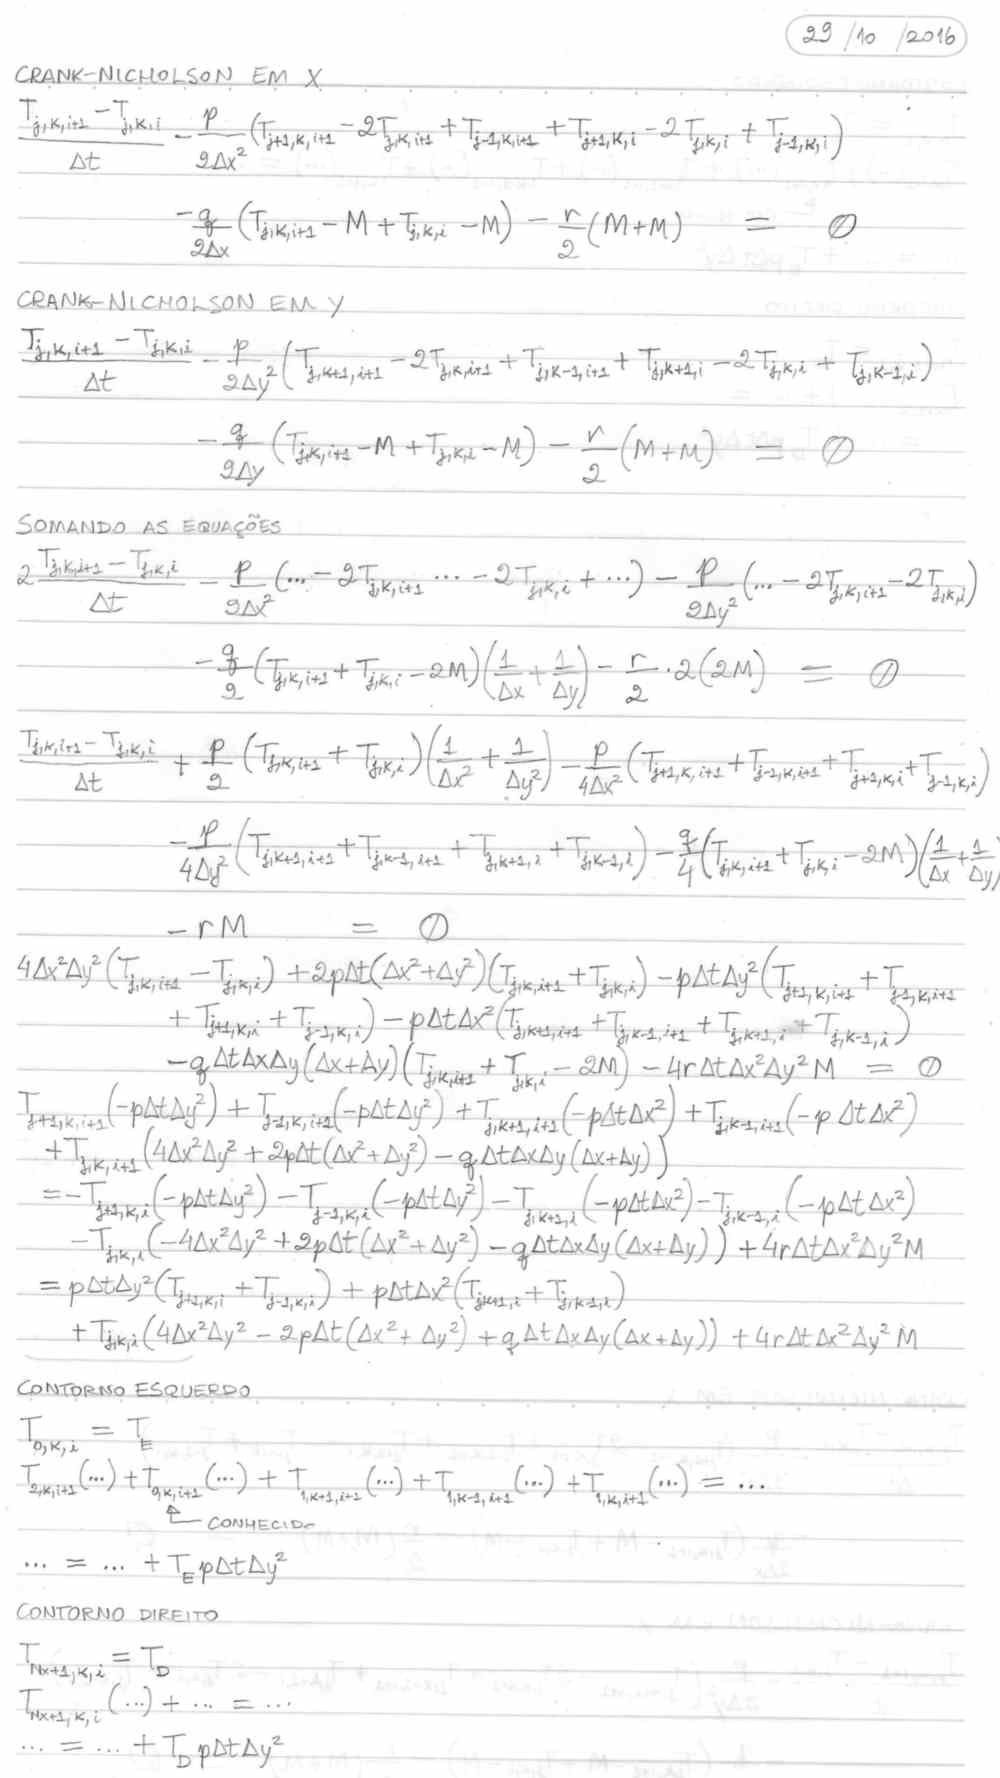 29/10/2016
CRANK-NICHOLSON EM X
(T_{j,k,i+1} - T_{j,k,i})/Δt - p/(2Δx²) (T_{j+1,k,i+1} - 2T_{j,k,i+1} + T_{j-1,k,i+1} + T_{j+1,k,i} - 2T_{j,k,i} + T_{j-1,k,i})
- q/(2Δx) (T_{j,k,i+1} - M + T_{j,k,i} - M) - r/2 (M+M) = 0
CRANK-NICHOLSON EM Y
(T_{j,k,i+1} - T_{j,k,i})/Δt - p/(2Δy²) (T_{j,k+1,i+1} - 2T_{j,k,i+1} + T_{j,k-1,i+1} + T_{j,k+1,i} - 2T_{j,k,i} + T_{j,k-1,i})
- q/(2Δy) (T_{j,k,i+1} - M + T_{j,k,i} - M) - r/2 (M+M) = 0
SOMANDO AS EQUAÇÕES
2 (T_{j,k,i+1} - T_{j,k,i})/Δt - p/(2Δx²) (... - 2T_{j,k,i+1} ... - 2T_{j,k,i} + ...) - p/(2Δy²) (... - 2T_{j,k,i+1} - 2T_{j,k,i})
- q/2 (T_{j,k,i+1} + T_{j,k,i} - 2M)(1/Δx + 1/Δy) - r/2 · 2(2M) = 0
(T_{j,k,i+1} - T_{j,k,i})/Δt + p/2 (T_{j,k,i+1} + T_{j,k,i})(1/Δx² + 1/Δy²) - p/(4Δx²) (T_{j+1,k,i+1} + T_{j-1,k,i+1} + T_{j+1,k,i} + T_{j-1,k,i})
- p/(4Δy²) (T_{j,k+1,i+1} + T_{j,k-1,i+1} + T_{j,k+1,i} + T_{j,k-1,i}) - q/4 (T_{j,k,i+1} + T_{j,k,i} - 2M)(1/Δx + 1/Δy)
- rM = 0
4Δx²Δy²(T_{j,k,i+1} - T_{j,k,i}) + 2pΔt(Δx²+Δy²)(T_{j,k,i+1} + T_{j,k,i}) - pΔtΔy²(T_{j+1,k,i+1} + T_{j-1,k,i+1}
+ T_{j+1,k,i} + T_{j-1,k,i}) - pΔtΔx²(T_{j,k+1,i+1} + T_{j,k-1,i+1} + T_{j,k+1,i} + T_{j,k-1,i})
- qΔtΔxΔy(Δx+Δy)(T_{j,k,i+1} + T_{j,k,i} - 2M) - 4rΔtΔx²Δy²M = 0
T_{j+1,k,i+1}(-pΔtΔy²) + T_{j-1,k,i+1}(-pΔtΔy²) + T_{j,k+1,i+1}(-pΔtΔx²) + T_{j,k-1,i+1}(-pΔtΔx²)
+ T_{j,k,i+1}(4Δx²Δy² + 2pΔt(Δx²+Δy²) - qΔtΔxΔy(Δx+Δy))
= -T_{j+1,k,i}(-pΔtΔy²) - T_{j-1,k,i}(-pΔtΔy²) - T_{j,k+1,i}(-pΔtΔx²) - T_{j,k-1,i}(-pΔtΔx²)
- T_{j,k,i}(-4Δx²Δy² + 2pΔt(Δx²+Δy²) - qΔtΔxΔy(Δx+Δy)) + 4rΔtΔx²Δy²M
= pΔtΔy²(T_{j+1,k,i} + T_{j-1,k,i}) + pΔtΔx²(T_{j,k+1,i} + T_{j,k-1,i})
+ T_{j,k,i}(4Δx²Δy² - 2pΔt(Δx²+Δy²) + qΔtΔxΔy(Δx+Δy)) + 4rΔtΔx²Δy²M
CONTORNO ESQUERDO
T_{0,k,i} = T_E
T_{2,k,i+1}(...) + T_{0,k,i+1}(...) + T_{1,k+1,i+1}(...) + T_{1,k-1,i+1}(...) + T_{1,k,i+1}(...) = ...
CONHECIDO
... = ... + T_E pΔtΔy²
CONTORNO DIREITO
T_{Nx+1,k,i} = T_D
T_{Nx+1,k,i}(...) + ... = ...
... = ... + T_D pΔtΔy²